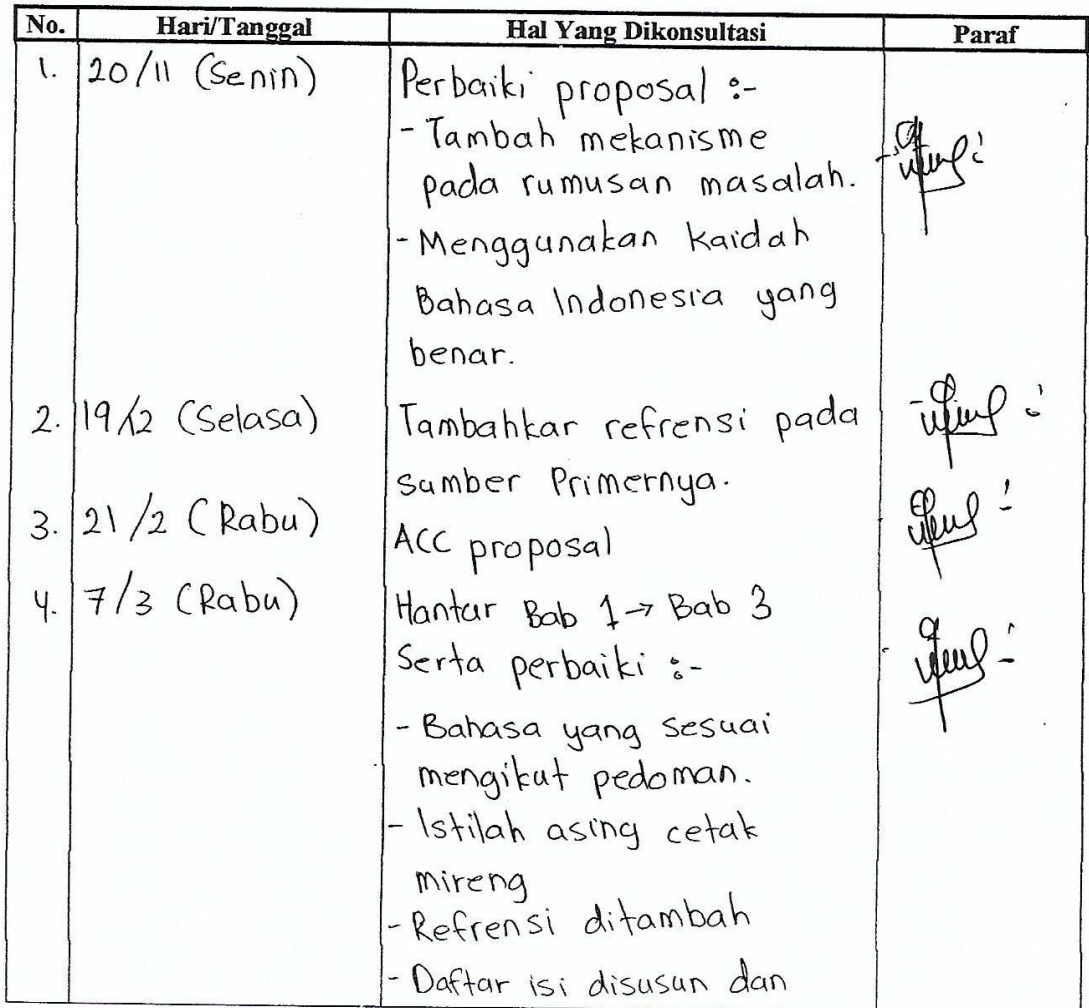 No. Hari/Tanggal Hal Yang Dikonsultasi Paraf
1. 20/11 (Senin) Perbaiki proposal :-
- Tambah mekanisme
pada rumusan masalah.
- Menggunakan kaidah
Bahasa Indonesia yang
benar.
2. 19/12 (Selasa) Tambahkar refrensi pada
sumber Primernya.
3. 21/2 (Rabu) ACC proposal
4. 7/3 (Rabu) Hantar Bab 1 → Bab 3
Serta perbaiki :-
- Bahasa yang sesuai
mengikut pedoman.
- Istilah asing cetak
mireng
- Refrensi ditambah
- Daftar isi disusun dan